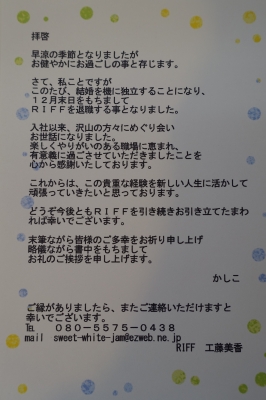 拝啓
早涼の季節となりましたが
お健やかにお過ごしの事と存じます。
さて、私ことですが
このたび、結婚を機に独立することになり、
１２月末日をもちまして
ＲＩＦＦを退職する事となりました。
入社以来、沢山の方々にめぐり会い
お世話になりました。
楽しくやりがいのある職場に恵まれ、
有意義に過ごさせていただきましたことを
心から感謝いたしております。
これからは、この貴重な経験を新しい人生に活かして
頑張っていきたいと思っております。
どうぞ今後ともＲＩＦＦを引き続きお引き立てたまわ
れば幸いでございます。
末筆ながら皆様のご多幸をお祈り申し上げ
略儀ながら書中をもちまして
お礼のご挨拶を申し上げます。
かしこ
ご縁がありましたら、またご連絡いただけますと
幸いでございます。
℡　０８０－５５７５－０４３８
mail sweet-white-jam@ezweb.ne.jp
RIFF 工藤美香